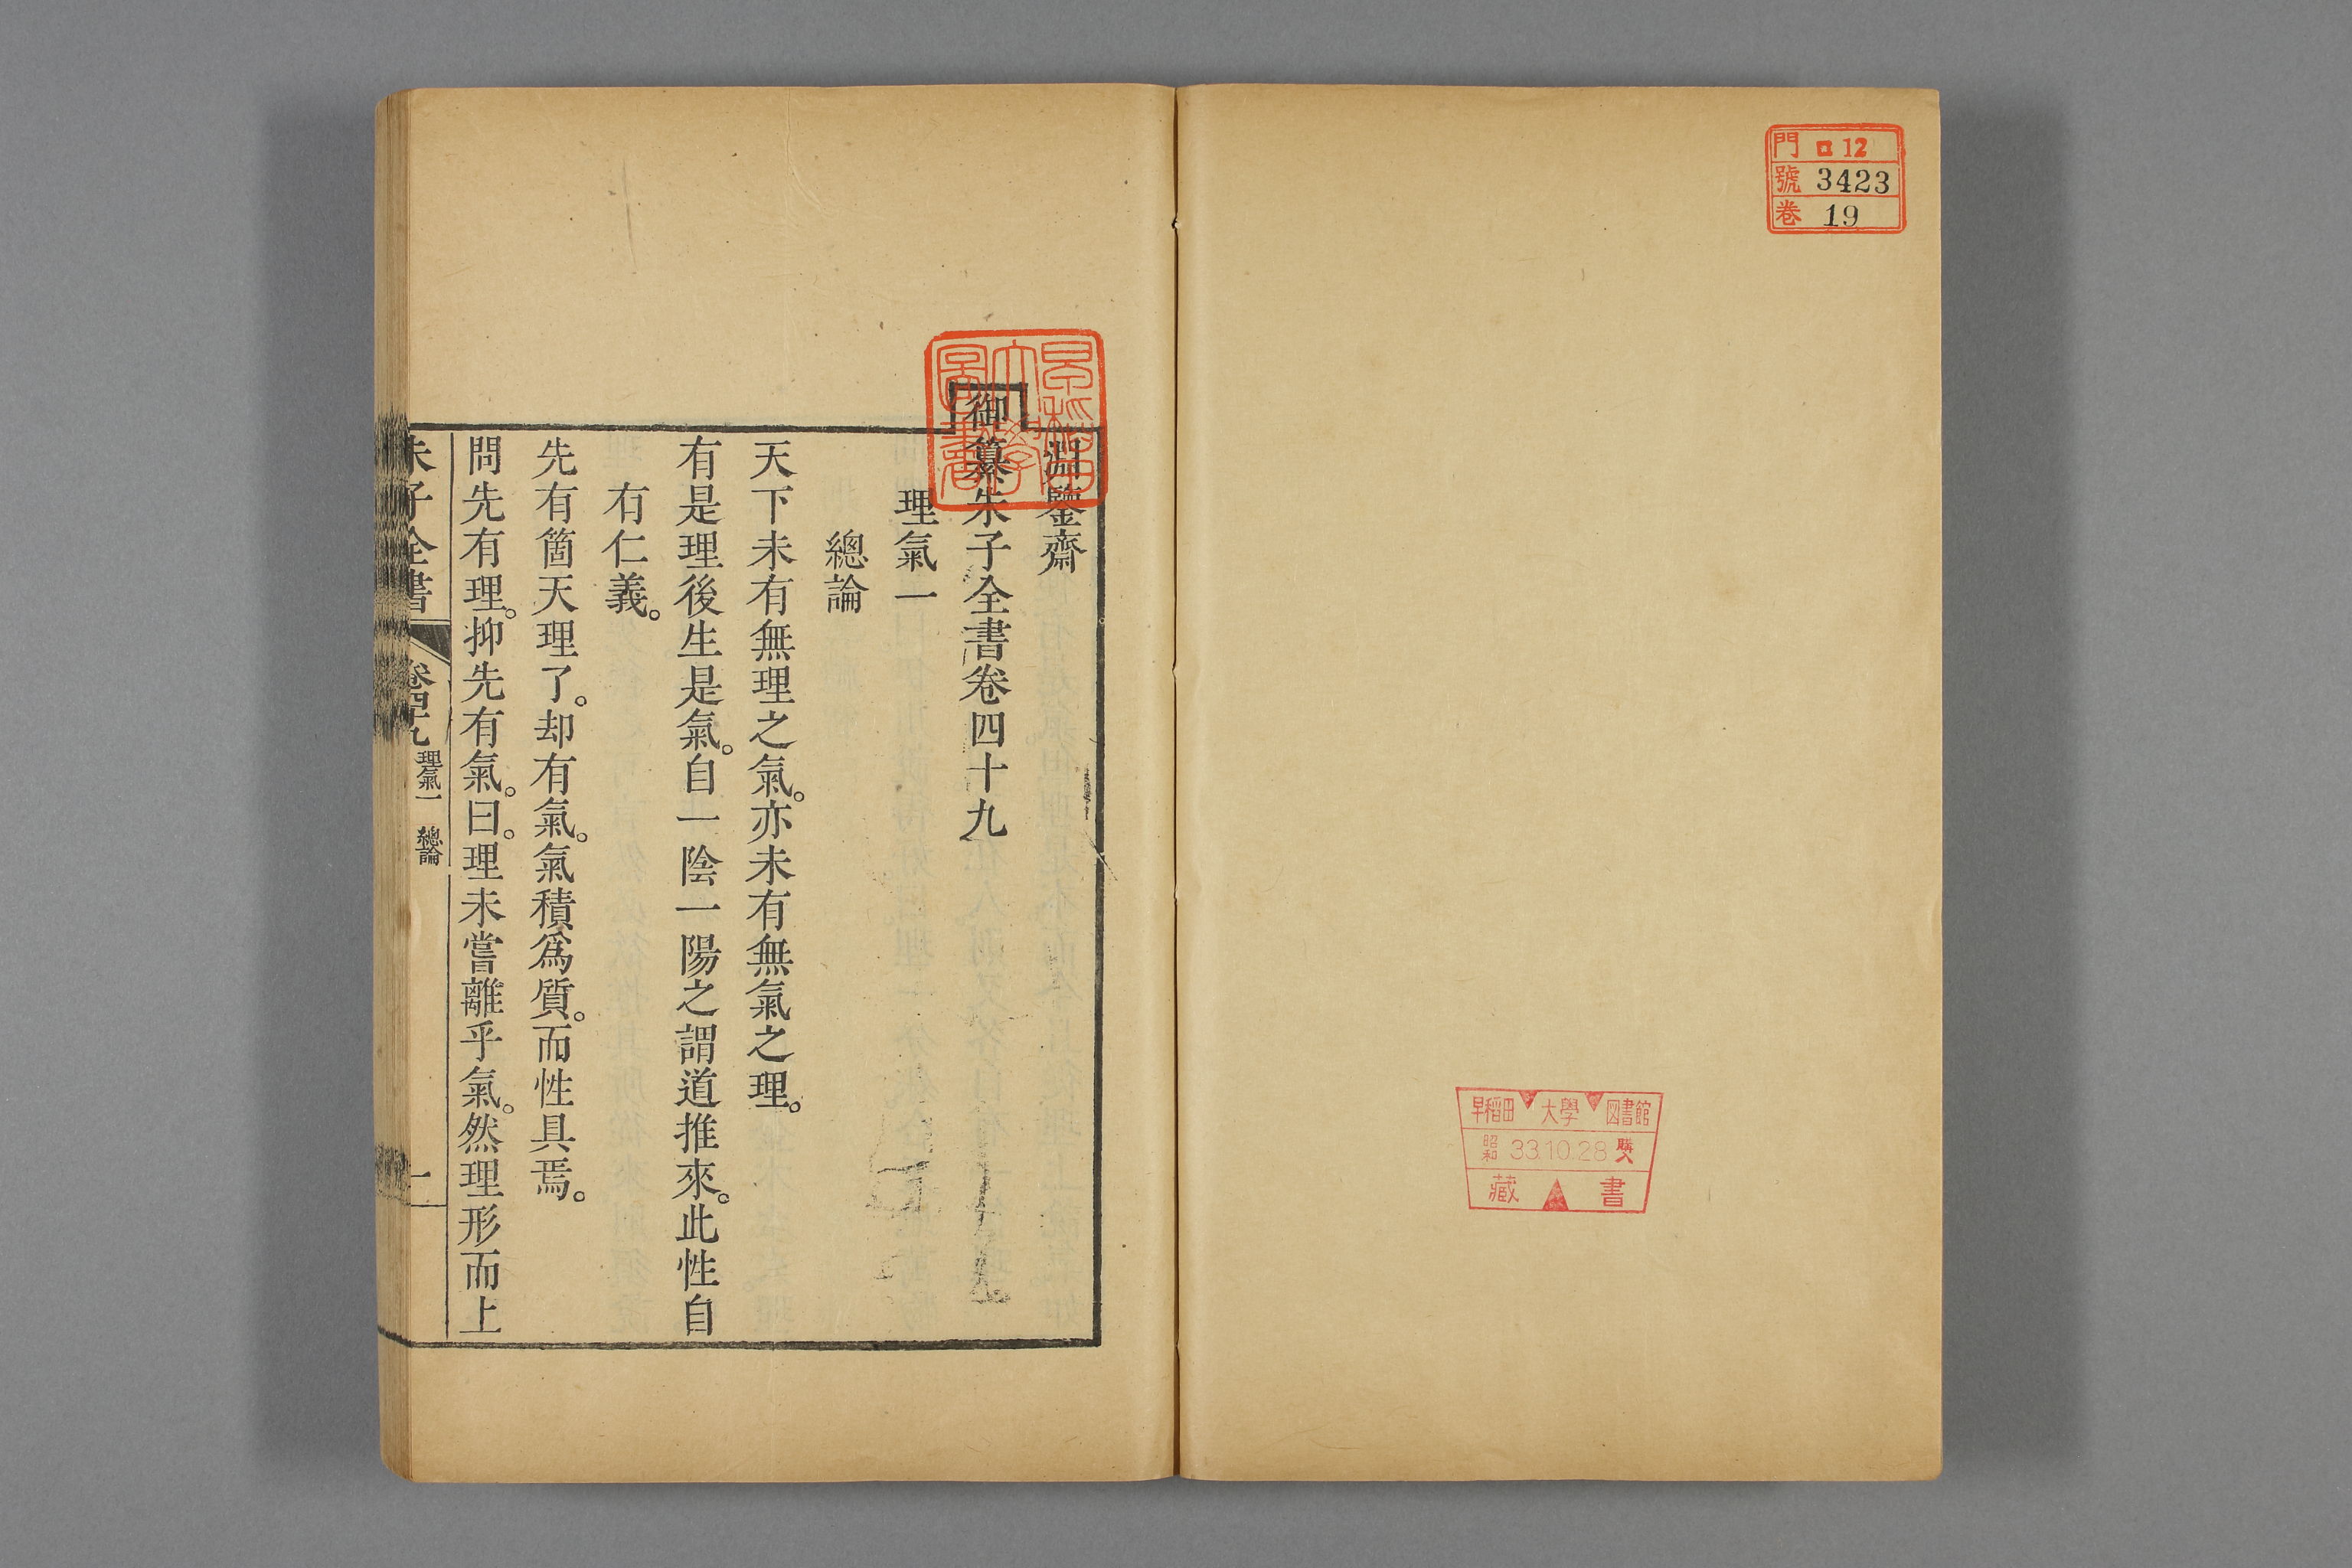 門 ロ 12
號 3423
卷 19
早稲田 大學 図書館
昭和 33.10.28 購入
藏書
早稲田
大學
圖書
淵鑒齋
御纂朱子全書卷四十九
理氣一
總論
天下未有無理之氣。亦未有無氣之理。
有是理後生是氣。自一陰一陽之謂道推來。此性自
有仁義。
先有箇天理了。却有氣。氣積爲質。而性具焉。
問先有理。抑先有氣。曰。理未嘗離乎氣。然理形而上
朱子全書 卷四十九 理氣一 總論 一